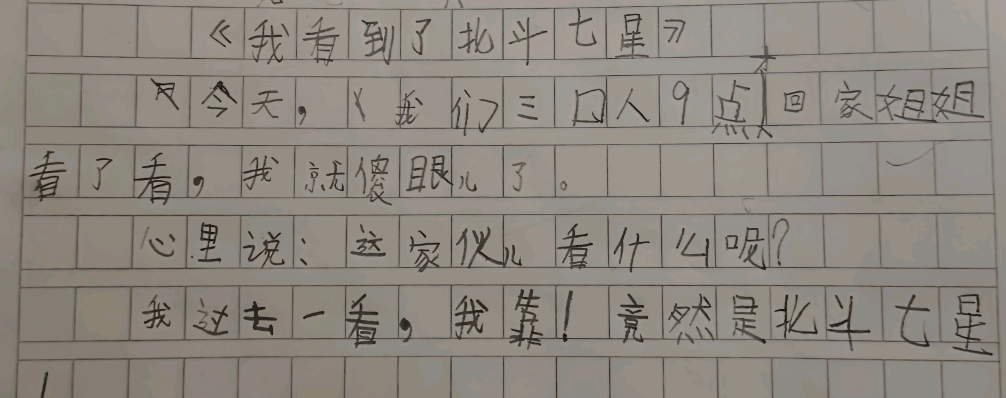 《我看到了北斗七星》
今天，我们三口人9点才回家姐姐
看了看，我就傻眼儿了。
心里说：这家伙儿看什么呢？
我过去一看，我靠！竟然是北斗七星
！